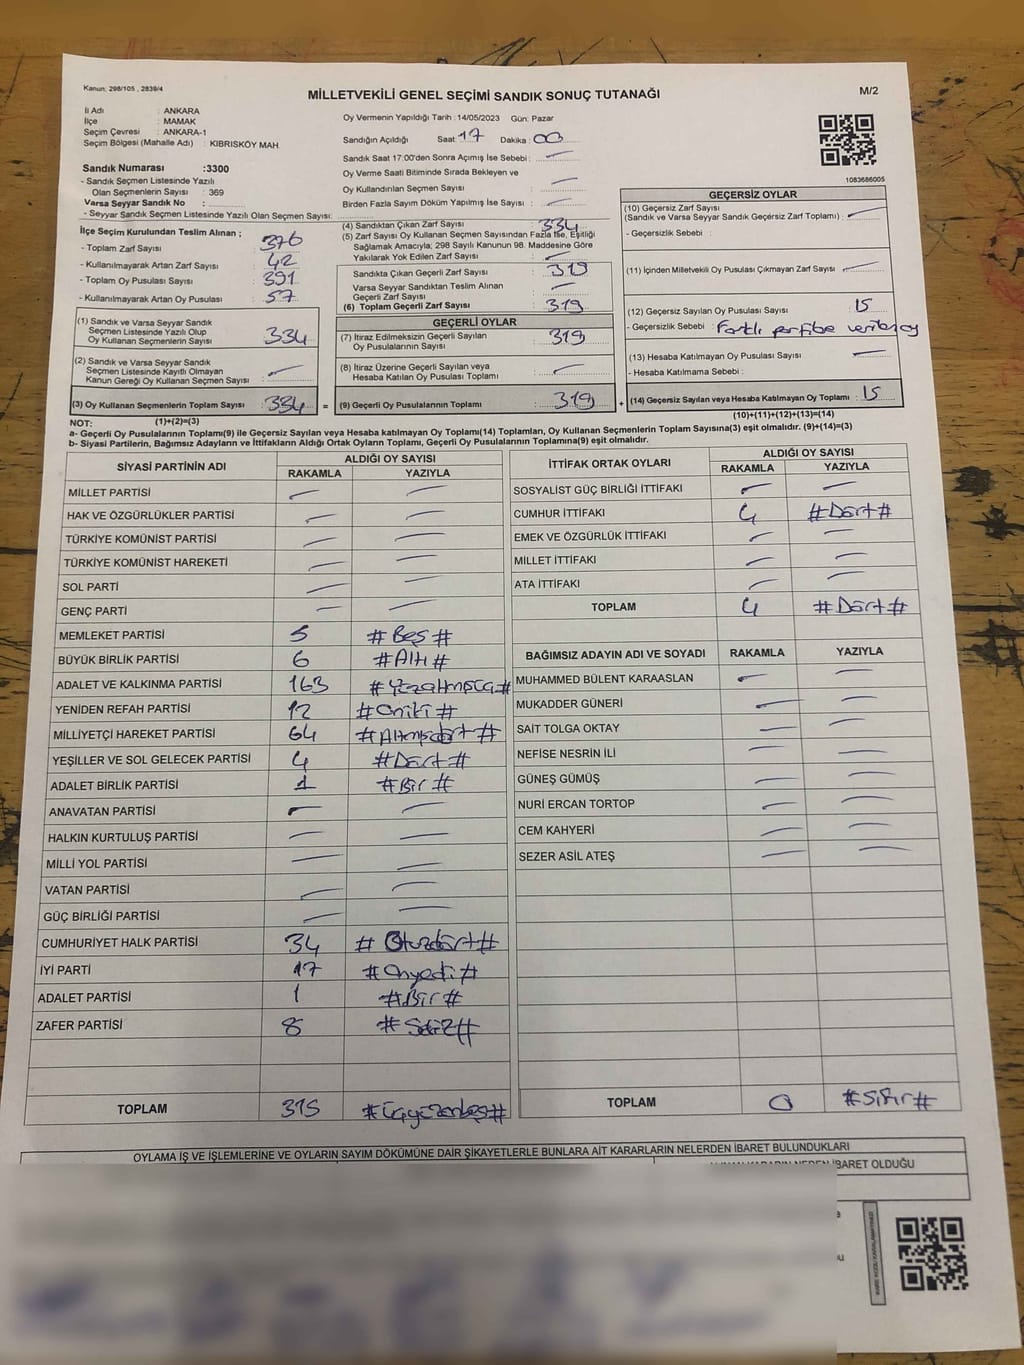 Kanun: 298/105 , 2839/4
MİLLETVEKİLİ GENEL SEÇİMİ SANDIK SONUÇ TUTANAĞI
M/2
İli Adı : ANKARA
İlçe : MAMAK
Seçim Çevresi : ANKARA-1
Seçim Bölgesi (Mahalle Adı) : KIBRISKÖY MAH.
Sandık Numarası :3300
- Sandık Seçmen Listesinde Yazılı
Olan Seçmenlerin Sayısı : 369
Varsa Seyyar Sandık No :
- Seyyar Sandık Seçmen Listesinde Yazılı Olan Seçmen Sayısı:
İlçe Seçim Kurulundan Teslim Alınan ;
- Toplam Zarf Sayısı : 376
- Kullanılmayarak Artan Zarf Sayısı : 42
- Toplam Oy Pusulası Sayısı : 391
- Kullanılmayarak Artan Oy Pusulası : 57
(1) Sandık ve Varsa Seyyar Sandık
Seçmen Listesinde Yazılı Olup
Oy Kullanan Seçmenlerin Sayısı : 334
(2) Sandık ve Varsa Seyyar Sandık
Seçmen Listesinde Kayıtlı Olmayan
Kanun Gereği Oy Kullanan Seçmen Sayısı : —
(3) Oy Kullanan Seçmenlerin Toplam Sayısı : 334 =
Oy Vermenin Yapıldığı Tarih : 14/05/2023 Gün: Pazar
Sandığın Açıldığı Saat: 17 Dakika : 00
Sandık Saat 17:00'den Sonra Açımış İse Sebebi : —
Oy Verme Saati Bitiminde Sırada Bekleyen ve
Oy Kullandırılan Seçmen Sayısı : —
Birden Fazla Sayım Döküm Yapılmış İse Sayısı : —
(4) Sandıktan Çıkan Zarf Sayısı : 334
(5) Zarf Sayısı Oy Kullanan Seçmen Sayısından Fazla İse, Eşitliği
Sağlamak Amacıyla; 298 Sayılı Kanunun 98. Maddesine Göre
Yakılarak Yok Edilen Zarf Sayısı : —
Sandıkta Çıkan Geçerli Zarf Sayısı : 319
Varsa Seyyar Sandıktan Teslim Alınan
Geçerli Zarf Sayısı : —
(6) Toplam Geçerli Zarf Sayısı : 319
GEÇERLİ OYLAR
(7) İtiraz Edilmeksizin Geçerli Sayılan
Oy Pusulalarının Sayısı : 319
(8) İtiraz Üzerine Geçerli Sayılan veya
Hesaba Katılan Oy Pusulası Toplamı : —
(9) Geçerli Oy Pusulalarının Toplamı : 319 +
1083686005
GEÇERSİZ OYLAR
(10) Geçersiz Zarf Sayısı
(Sandık ve Varsa Seyyar Sandık Geçersiz Zarf Toplamı) : —
- Geçersizlik Sebebi :
(11) İçinden Milletvekili Oy Pusulası Çıkmayan Zarf Sayısı : —
(12) Geçersiz Sayılan Oy Pusulası Sayısı : 15
- Geçersizlik Sebebi : Farklı partibe oy
(13) Hesaba Katılmayan Oy Pusulası Sayısı : —
- Hesaba Katılmama Sebebi :
(14) Geçersiz Sayılan veya Hesaba Katılmayan Oy Toplamı : 15
(10)+(11)+(12)+(13)=(14)
NOT: (1)+(2)=(3)
a- Geçerli Oy Pusulalarının Toplamı(9) ile Geçersiz Sayılan veya Hesaba katılmayan Oy Toplamı(14) Toplamları, Oy Kullanan Seçmenlerin Toplam Sayısına(3) eşit olmalıdır. (9)+(14)=(3)
b- Siyasi Partilerin, Bağımsız Adayların ve İttifakların Aldığı Ortak Oyların Toplamı, Geçerli Oy Pusulalarının Toplamına(9) eşit olmalıdır.
SİYASİ PARTİNİN ADI ALDIĞI OY SAYISI
RAKAMLA YAZIYLA
MİLLET PARTİSİ — —
HAK VE ÖZGÜRLÜKLER PARTİSİ — —
TÜRKİYE KOMÜNİST PARTİSİ — —
TÜRKİYE KOMÜNİST HAREKETİ — —
SOL PARTİ — —
GENÇ PARTİ — —
MEMLEKET PARTİSİ 5 #Beş#
BÜYÜK BİRLİK PARTİSİ 6 #Altı#
ADALET VE KALKINMA PARTİSİ 163
YENİDEN REFAH PARTİSİ 12 #Oniki#
MİLLİYETÇİ HAREKET PARTİSİ 64 #Altmışdört#
YEŞİLLER VE SOL GELECEK PARTİSİ 4 #Dört#
ADALET BİRLİK PARTİSİ 1 #Bir#
ANAVATAN PARTİSİ — —
HALKIN KURTULUŞ PARTİSİ — —
MİLLİ YOL PARTİSİ — —
VATAN PARTİSİ — —
GÜÇ BİRLİĞİ PARTİSİ — —
CUMHURİYET HALK PARTİSİ 34 #Otuzdört#
İYİ PARTİ 17 #Onyedi#
ADALET PARTİSİ 1 #Bir#
ZAFER PARTİSİ 8 #Sekiz#
TOPLAM 315 #Üçyüzonbeş#
İTTİFAK ORTAK OYLARI ALDIĞI OY SAYISI
RAKAMLA YAZIYLA
SOSYALİST GÜÇ BİRLİĞİ İTTİFAKI — —
CUMHUR İTTİFAKI 4 #Dört#
EMEK VE ÖZGÜRLÜK İTTİFAKI — —
MİLLET İTTİFAKI — —
ATA İTTİFAKI — —
TOPLAM 4 #Dört#
BAĞIMSIZ ADAYIN ADI VE SOYADI RAKAMLA YAZIYLA
MUHAMMED BÜLENT KARAASLAN — —
MUKADDER GÜNERİ — —
SAİT TOLGA OKTAY — —
NEFİSE NESRİN İLİ — —
GÜNEŞ GÜMÜŞ — —
NURİ ERCAN TORTOP — —
CEM KAHYERİ — —
SEZER ASİL ATEŞ — —
TOPLAM 0 #Sıfır#
OYLAMA İŞ VE İŞLEMLERİNE VE OYLARIN SAYIM DÖKÜMÜNE DAİR ŞİKAYETLERLE BUNLARA AİT KARARLARIN NELERDEN İBARET BULUNDUKLARI
İBARET OLDUĞU